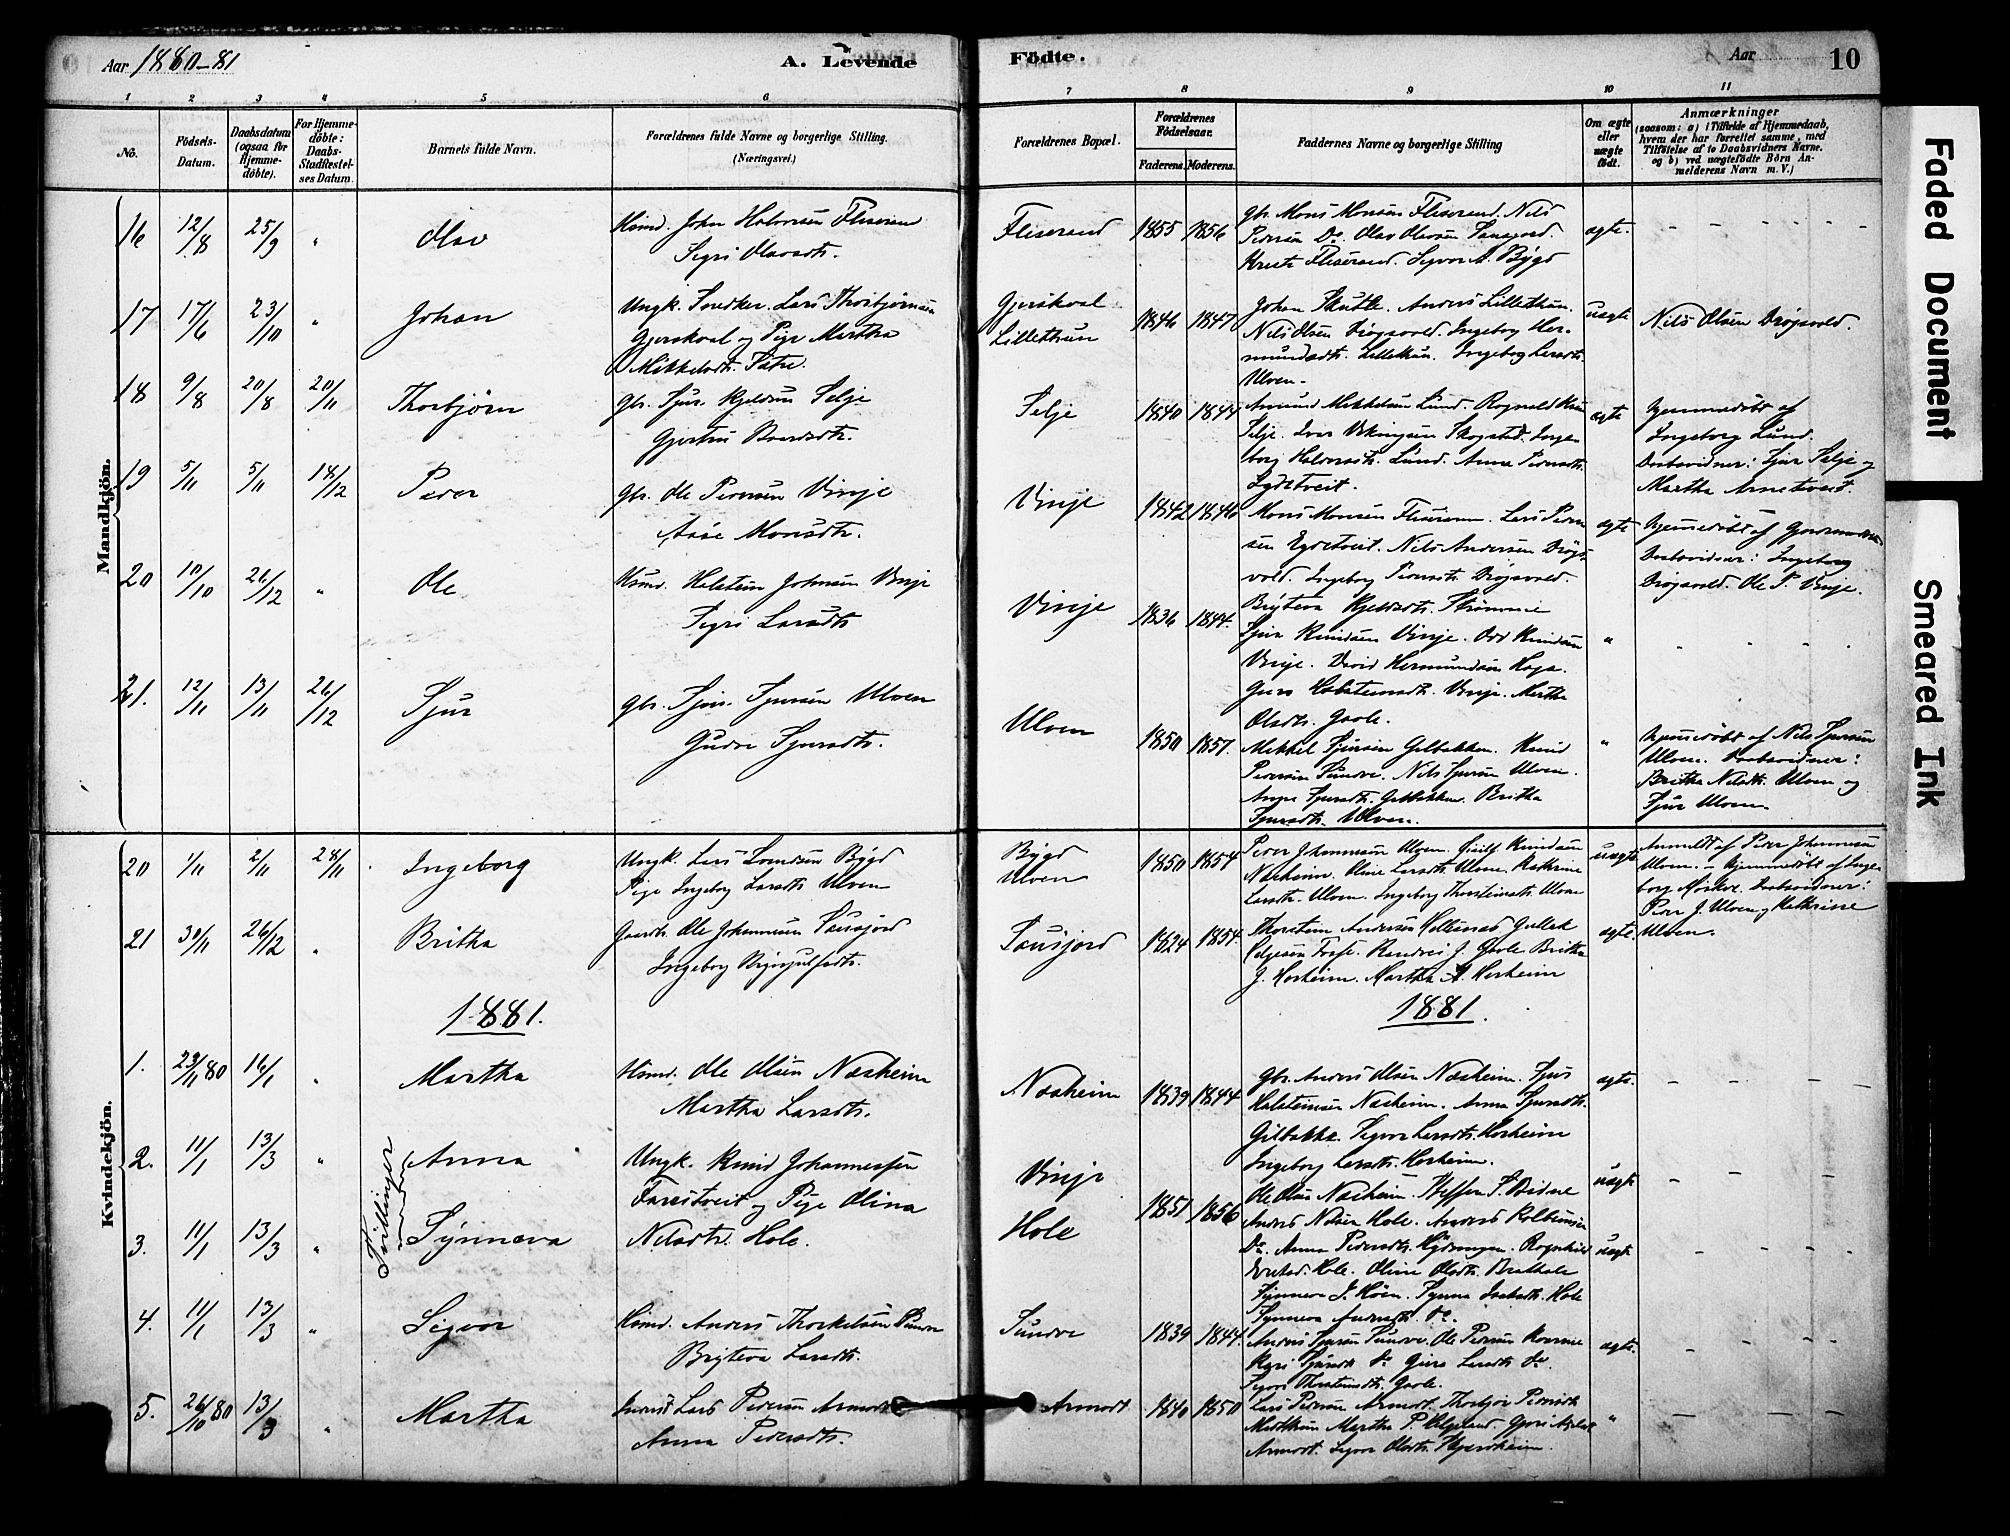 Aar 1880-81
A. Levende Fødte.
Aar
10
1 2 3 4 5 6 7 8 9 10 11
No.
Födsels-
Datum.
Daabsdatum
(ogsaa for
Hjemme-
döbte).
For Hjemme-
döbte:
Daabs-
Stadfæstel-
ses Datum.
Barnets fulde Navn.
Forældrenes fulde Navne og borgerlige Stilling.
(Næringsvei.)
Forældrenes Bopæl.
Forældrenes
Födselsaar.
Faderens. Moderens.
Faddernes Navne og borgerlige Stilling
Om ægte
eller
uægte
födt.
Anmærkninger
(saasom: a) i Tilfælde af Hjemmedaab,
hvem der har forrettet samme, med
Tilföielse af to Daabsvidners Navne.
og b) ved uægtefödte Börn An-
melderens Navn m. V.)
Mandkjön.
16 12/8 25/9 " Olav
Husmd. John Halvorsen Fliserand
Sigri Olavsdtr.
Fliserand 1855 1856
Gbr. Mons Monsen Fliserand. Nils
Pedersen Do. Olav Olavsen
Fliserand. Sigvor A. Bygd
ægte. - - - -
17 17/6 23/10 " Johan
Ungk. Snedker. Lars Thorbjørnsen
Gjerskval og Pige Martha
Mikkelsdtr. Sætre.
Gjerskval
Lillethun
1846 1847
Johan Skutle. Anders Lillethun.
Nils Olsen Drøgsvold. Ingeborg Her-
mundsdtr. Lillethun. Ingeborg Larsdtr.
Ulven.
uægte Nils Olsen Drøgsvold.
18 9/8 20/8 20/11 Thorbjørn
Gbr. Sjur Kjeldsen Selje
Gjertru Baardsdtr.
Selje 1840 1844
Amund Mikkelsen Lund. Rognald
Selje. Iver Vikingsen Skogstad. Inge-
borg Halvorsdtr. Lund. Anna Pedersdtr.
Lydetveit.
ægte
Hjemmedøbt af
Ingeborg Lund.
Daabsvidner: Sjur Selje og
Martha Arnetveit.
19 5/11 5/11 18/12 Peder
Gbr. Ole Pedersen Vinje
Aase Monsdtr.
Vinje 1842 1846
Mons Monsen Fliseram. Lars Peder-
sen Egdetveit. Nils Andersen Drøgs-
vold. Ingeborg Pedersdtr. Drøgsvold.
Bryteva Kjeldsdtr. Strømme
ægte
Hjemmedøbt af
Daabsvidner: Ingeborg
Drøgsvold. Ole P. Vinje.
20 10/10 26/12 " Ole
Husmd. Holstein Johnsen Vinje
Sigri Larsdtr.
Vinje 1836 1844.
Sjur Knudsen Vinje. Odd Knudsen
Vinje. David Hermundsen Haga.
Guro Holsteinsdtr. Vinje. Martha
Olsdtr. Gjole.
" - - -
21. 12/11 13/11 26/12 Sjur
Gbr. Sjur Sjursen Ulven
Gudve Sjursdtr.
Ulven 1850 1857.
Mikkel Sjursen Gilbakken. Knud
Pedersen Sundve. Nils Sjursen Ulven.
Anna Sjursdtr. Gilbakken. Britha
Sjursdtr. Ulven.
"
Hjemmedøbt af Nils Sjursen
Ulven. Daabsvidner:
Britha Nilsdtr. Ulven og
Sjur Ulven.
Kvindekjön.
20 1/11 2/11 28/11 Ingeborg
Ungk. Lars Svendsen Bygd
Pige Ingeborg Larsdtr. Ulven
Bygd
Ulven
1850 1854
Peder Johannesen Ulven. Knudsen
Næsheim. Oline Larsdtr. Ulven. Kathrine
Larsdtr. Ulven. Ingeborg Thorsteinsdtr. Ulven
uægte
Anmeldt af Peder Johannesen
Ulven. Hjemmedøbt af Inge-
borg Mørkve. Daabsvidner:
Peder J. Ulven og Kathrine
Ulven.
21 30/11 26/12 " Britha
Gaardbr. Ole Johannesen Sausjord
Ingeborg Brynjulfsdtr.
Sausjord 1824 1854.
Thorstein Andersen
Helgesen Forse. Randvei J. Gjole. Britha
J. Horheim. Martha A. Horheim
ægte.
1881. 1881.
1. 23/11 80 16/1 " Martha
Husmd. Ole Olsen Næsheim
Martha Larsdtr.
Næsheim 1839 1844
Gbr. Anders Olsen Næsheim. Sjur
Holsteinsen Næsheim. Anna Sjursdtr.
Gilbakke. Sigvor Larsdtr. Horheim
Ingeborg Larsdtr. Horheim.
ægte. - - - -
Tvillinger
2. 11/1 13/3 " Anna
Ungk. Knud Johannessen
Farestveit og Pige Olina
Nilsdtr. Hole.
Vinje
Hole
1851 1856
Ole Olsen Næsheim. Steffen S. Bidne
Anders Nilsen Hole. Anders Kolbeinsen
Do. Anna Pedersdtr. Rognhild
Hole. Oline Olsdtr. Brathole
Synneva
uægte - - - -
3. 11/1 13/3 " Synneva
uægte - - - -
4. 11/1 13/3 " Sigvor
Husmd. Anders Thorkelsen Sundve
Bryteva Larsdtr.
Sundve 1839 1844.
Anders Sjursen Sundve. Ole Pedersen
Kari Sjursdtr. Do. Guro Larsdtr. Do.
Sigvor Thorsteinsdtr. Gjole.
ægte. - - - -
5. 26/10 80 13/3 " Martha
Lars Pedersen Armodt
Anna Pedersdtr.
Armodt 1840 1850
Lars Pedersen Armodt. Thorbjør Pedersdtr.
Midttun. Martha P. Helgeland.
Armodt. Sigvor Olsdtr. Skjerdheim.
" - - - -
Faded Document
Smeared Ink